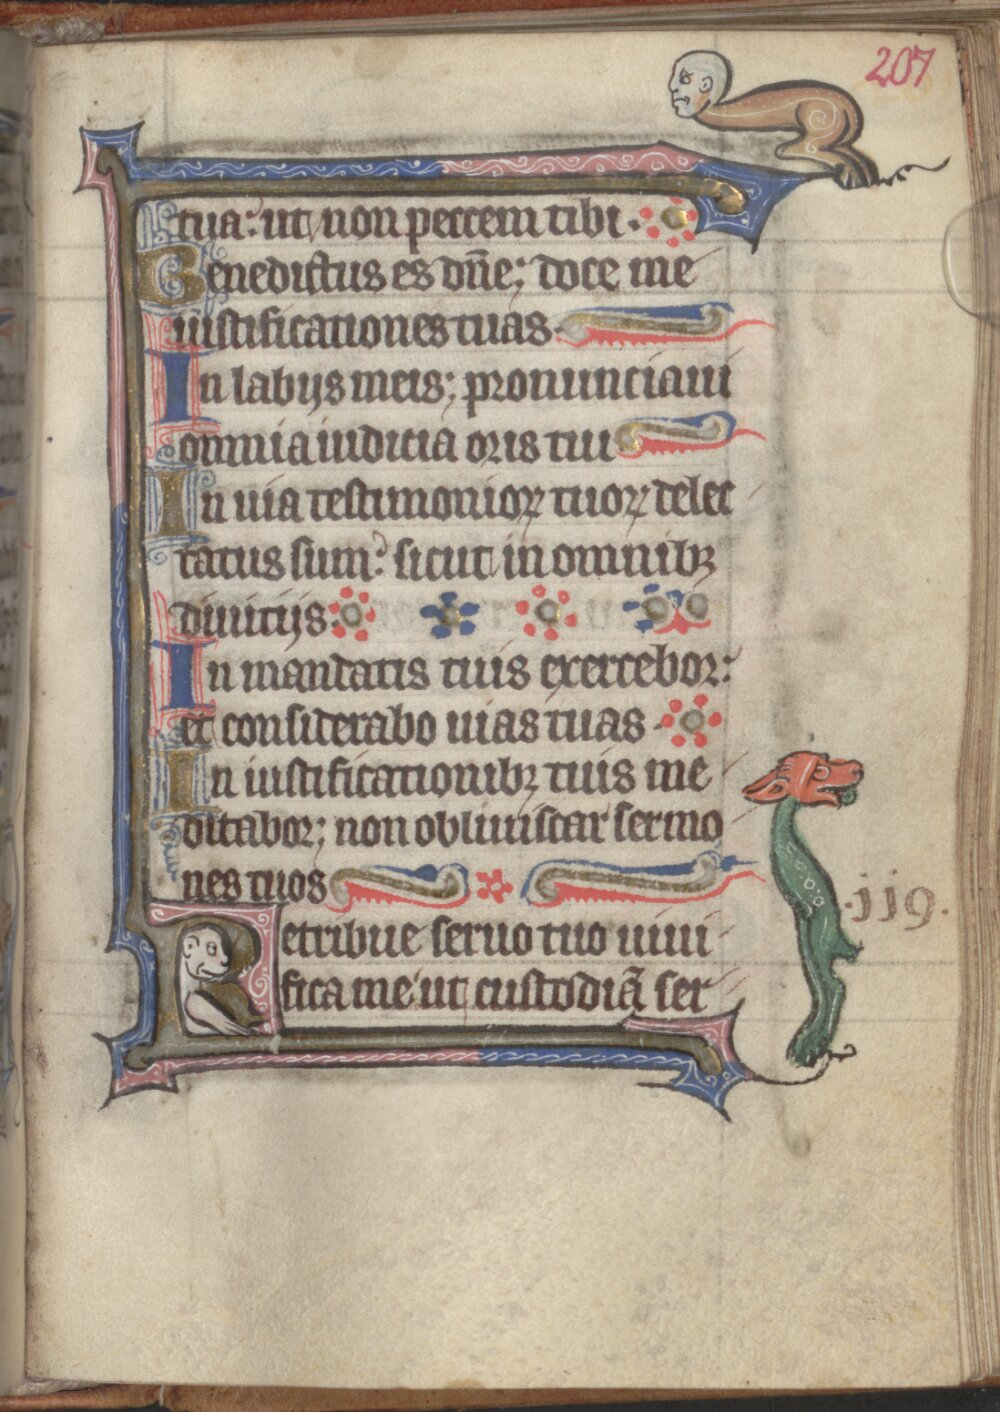 207
tua: ut non peccem tibi.
Benedictus es dñe; doce me
iustificationes tuas
In labijs meis; pronunciaui
omnia iudicia oris tui
In uia testimonioꝝ tuoꝝ delec
tatus sum: sicut in omnibꝫ
diuitijs
In mandatis tuis exercebor:
et considerabo uias tuas
In iustificationibꝫ tuis me
ditabor; non obliuiscar sermo
nes tuos
.119.
Retribue seruo tuo uiui
fica me ut custodiā ser